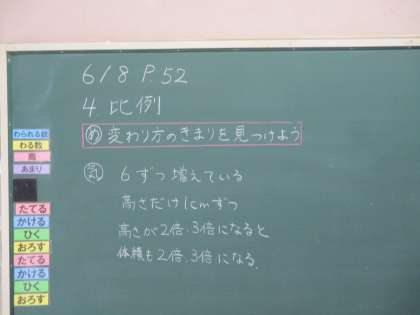 6/8 P.52
4.比例
め 変わり方のきまりを見つけよう
気 6ずつ増えている
高さだけ1cmずつ
高さが2倍、3倍になると
体積も2倍、3倍になる。
わられる数
わる数
商
あまり
たてる
かける
ひく
おろす
たてる
かける
ひく
おろす